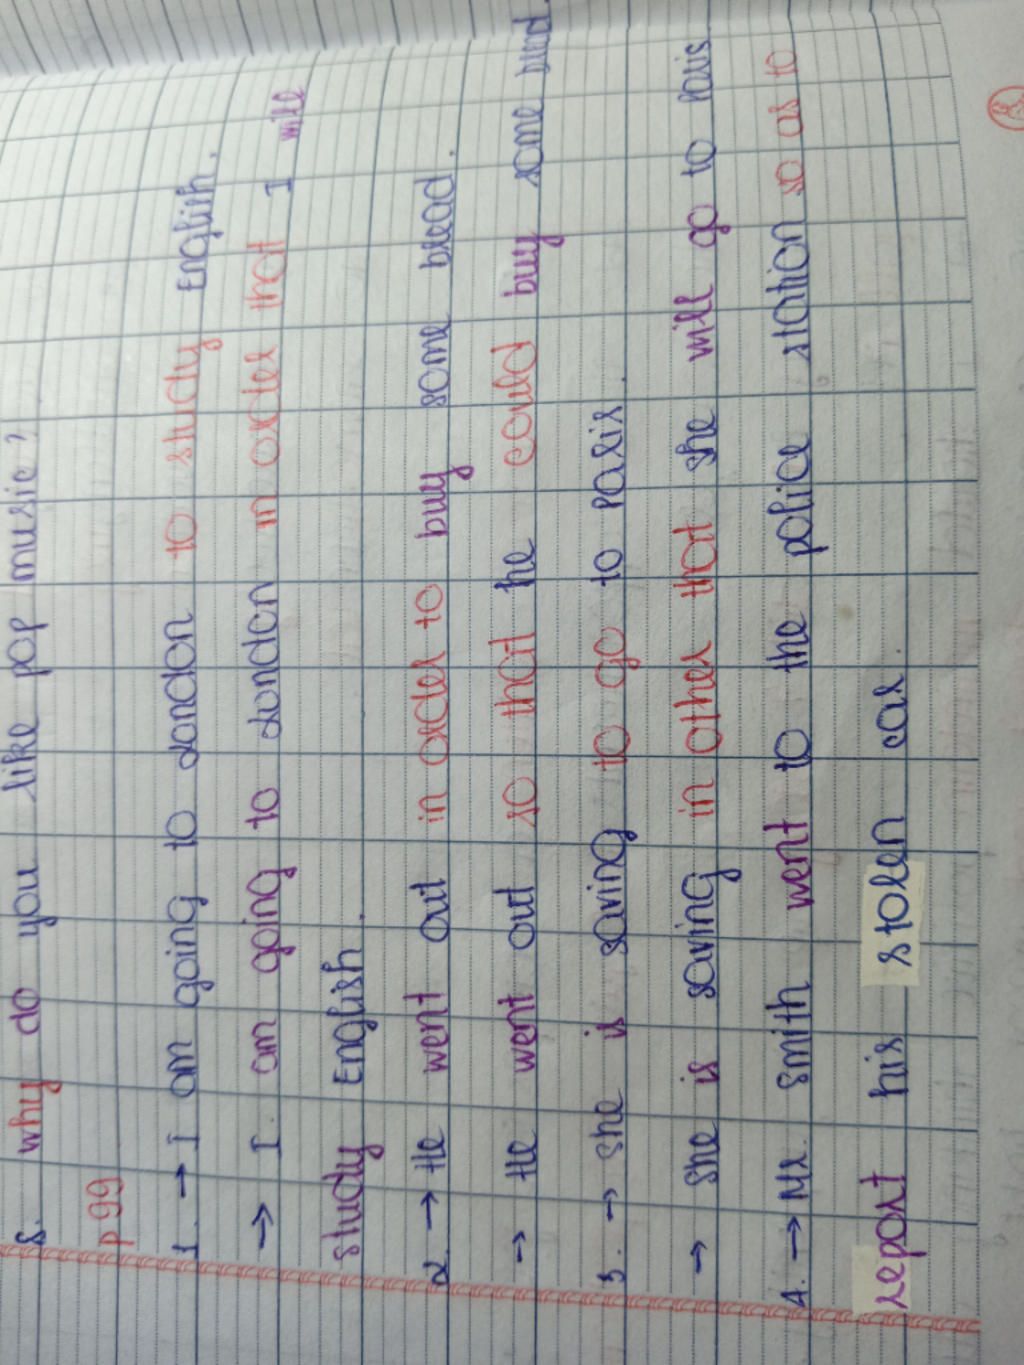 8. why do you like pop music?
p 99
1. → I am going to London to study English.
→ I am going to London in order that I will
study English.
2. → He went out in order to buy some bread.
→ He went out so that he could buy some bread.
3. → she is saving to go to Paris.
→ She is saving in other that she will go to Paris
4. → Mr Smith went to the police station so as to
report his stolen car.